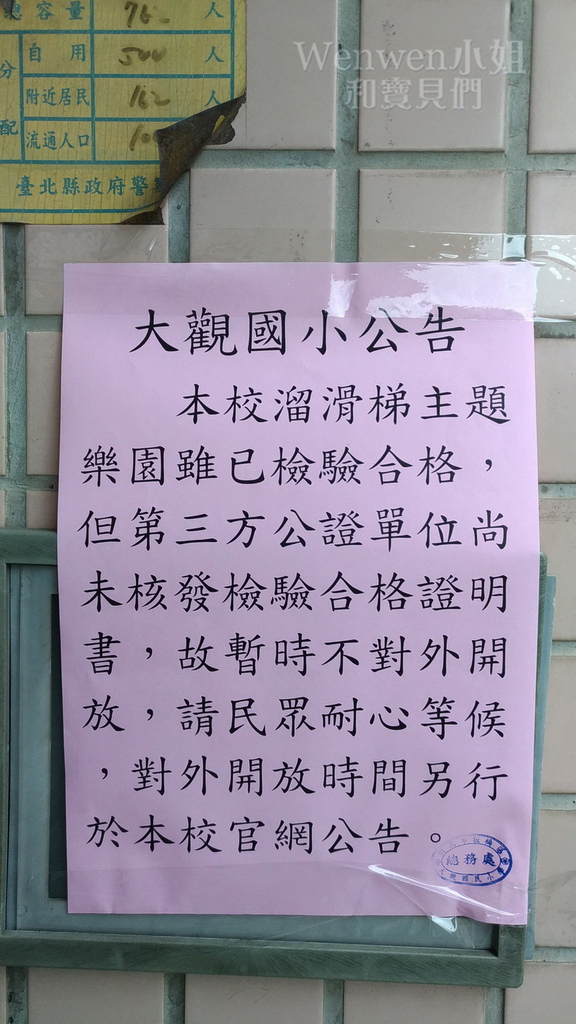 總容量 762 人
自用 500 人
分
附近居民 162 人
配
流通人口 100
臺北縣政府警
Wenwen小姐
和寶貝們
大觀國小公告
本校溜滑梯主題
樂園雖已檢驗合格，
但第三方公證單位尚
未核發檢驗合格證明
書，故暫時不對外開
放，請民眾耐心等候
，對外開放時間另行
於本校官網公告。
總務處